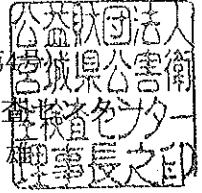 公益財団法人
宮城県公害衛
生検査センター
理事長之印
雄